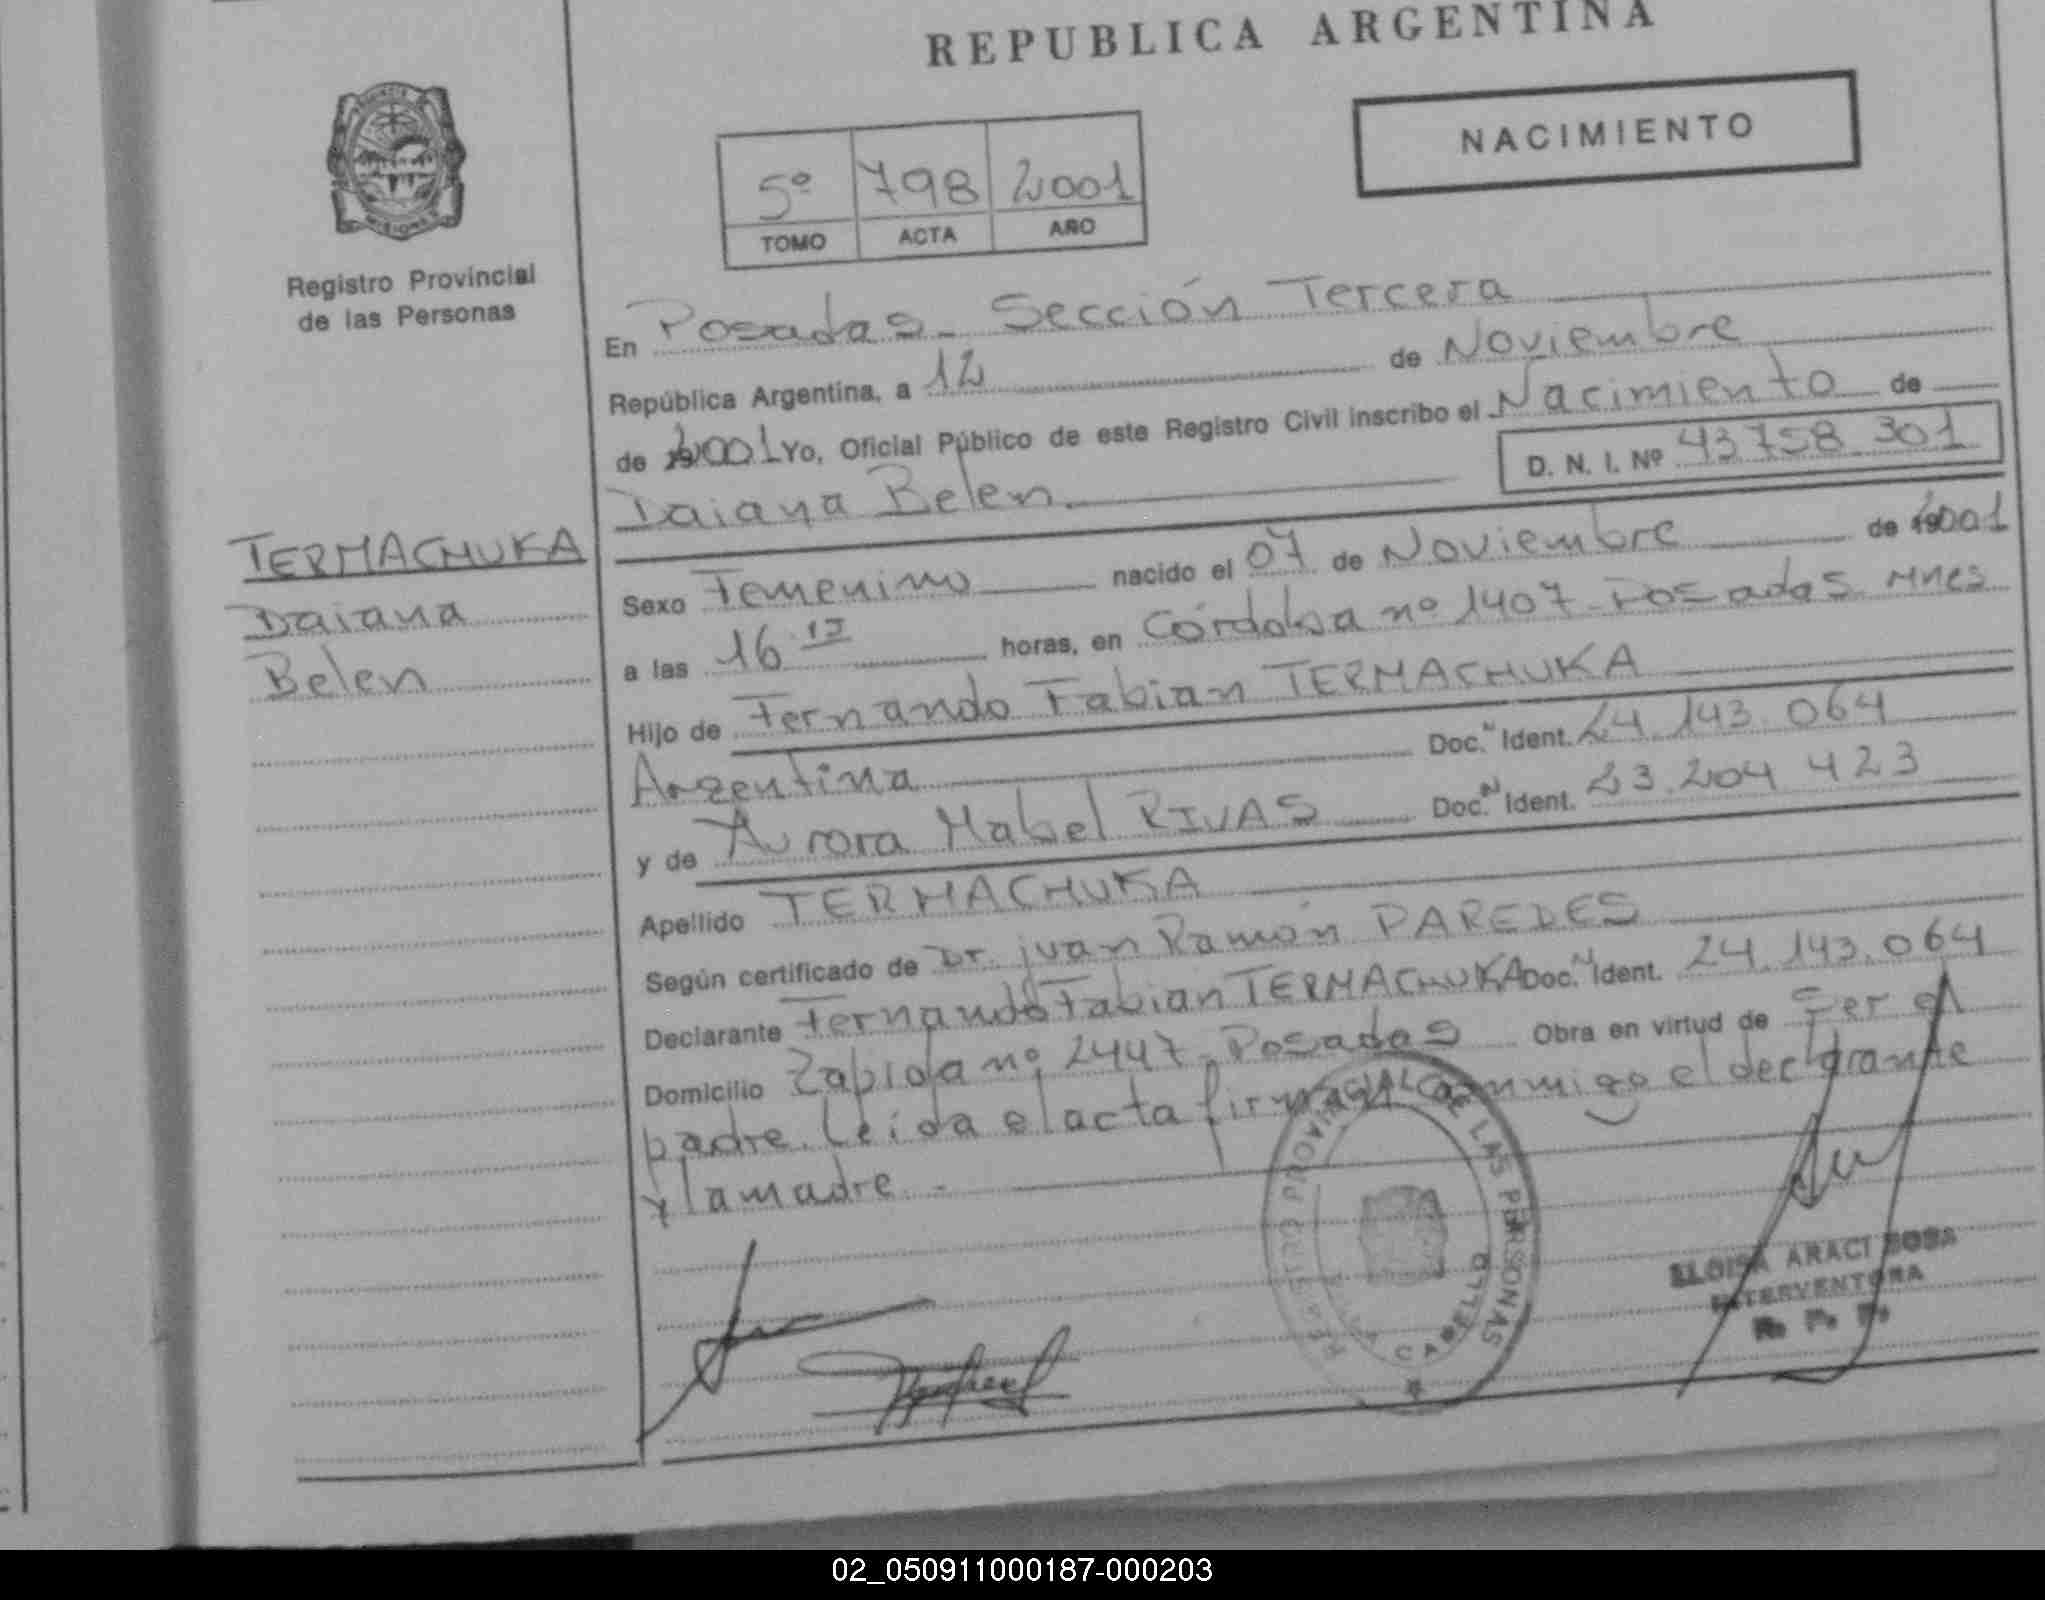 REPUBLICA ARGENTINA
NACIMIENTO
5º 798 2001
TOMO ACTA AÑO
Registro Provincial
de las Personas
En Posadas - Sección Tercera
República Argentina, a 12 de Noviembre
de 2001 Yo, Oficial Público de este Registro Civil inscribo el Nacimiento de
Daiana Belen.
D. N. I. Nº 43 758 301
TERMACHUKA
Daiana
Belen
Sexo Femenino nacido el 07 de Noviembre de 2001
a las 16 horas, en Córdoba nº 1407 - Posadas Mnes
Hijo de Fernando Fabian TERMACHUKA
Argentina Doc. N Ident. 24.143.064
y de Aurora Mabel RIVAS Doc. N Ident. 23.204 423
Apellido TERMACHUKA
Según certificado de Dr. Juan Ramón PAREDES
Declarante Fernando Fabian TERMACHUKA Doc. N Ident. 24.143.064
Domicilio Zapiola nº 2447 - Posadas Obra en virtud de Ser el
padre. Leida el acta firman conmigo el declarante
y la madre. -
REGISTRO PROVINCIAL DE LAS PERSONAS
ELOISA ARACI SOSA
INTERVENTORA
R. P. P.
PROVINCIA
MISIONES
02_050911000187-000203